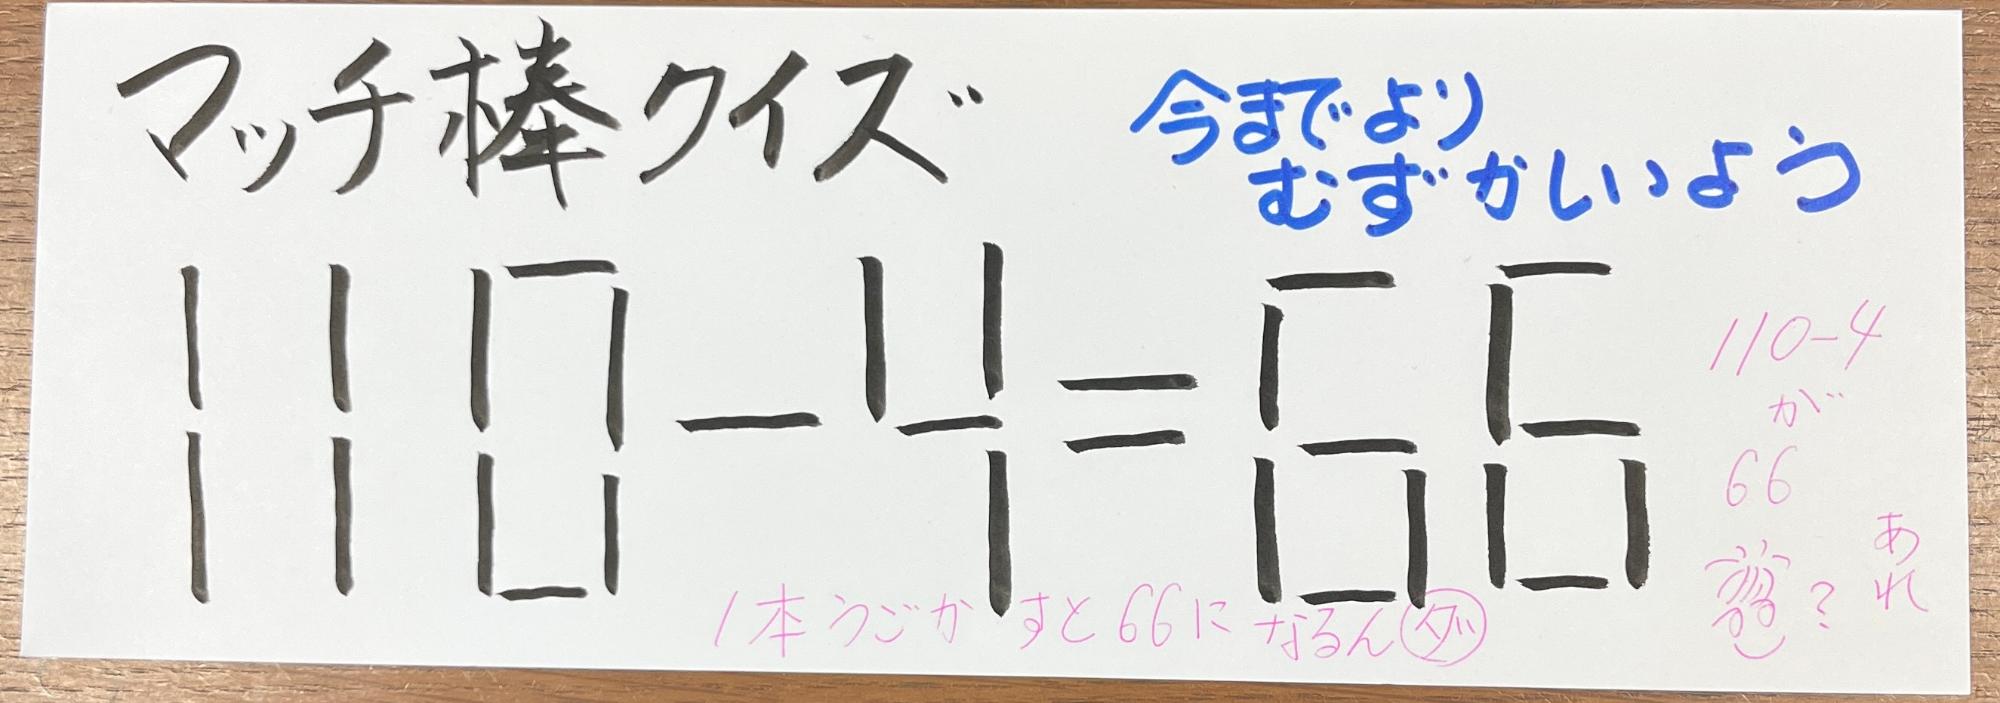 マッチ棒クイズ
今までより
むずかしいよう
110-4=66
110-4
が
66
?
あれ
1本うごかすと66になるんダ